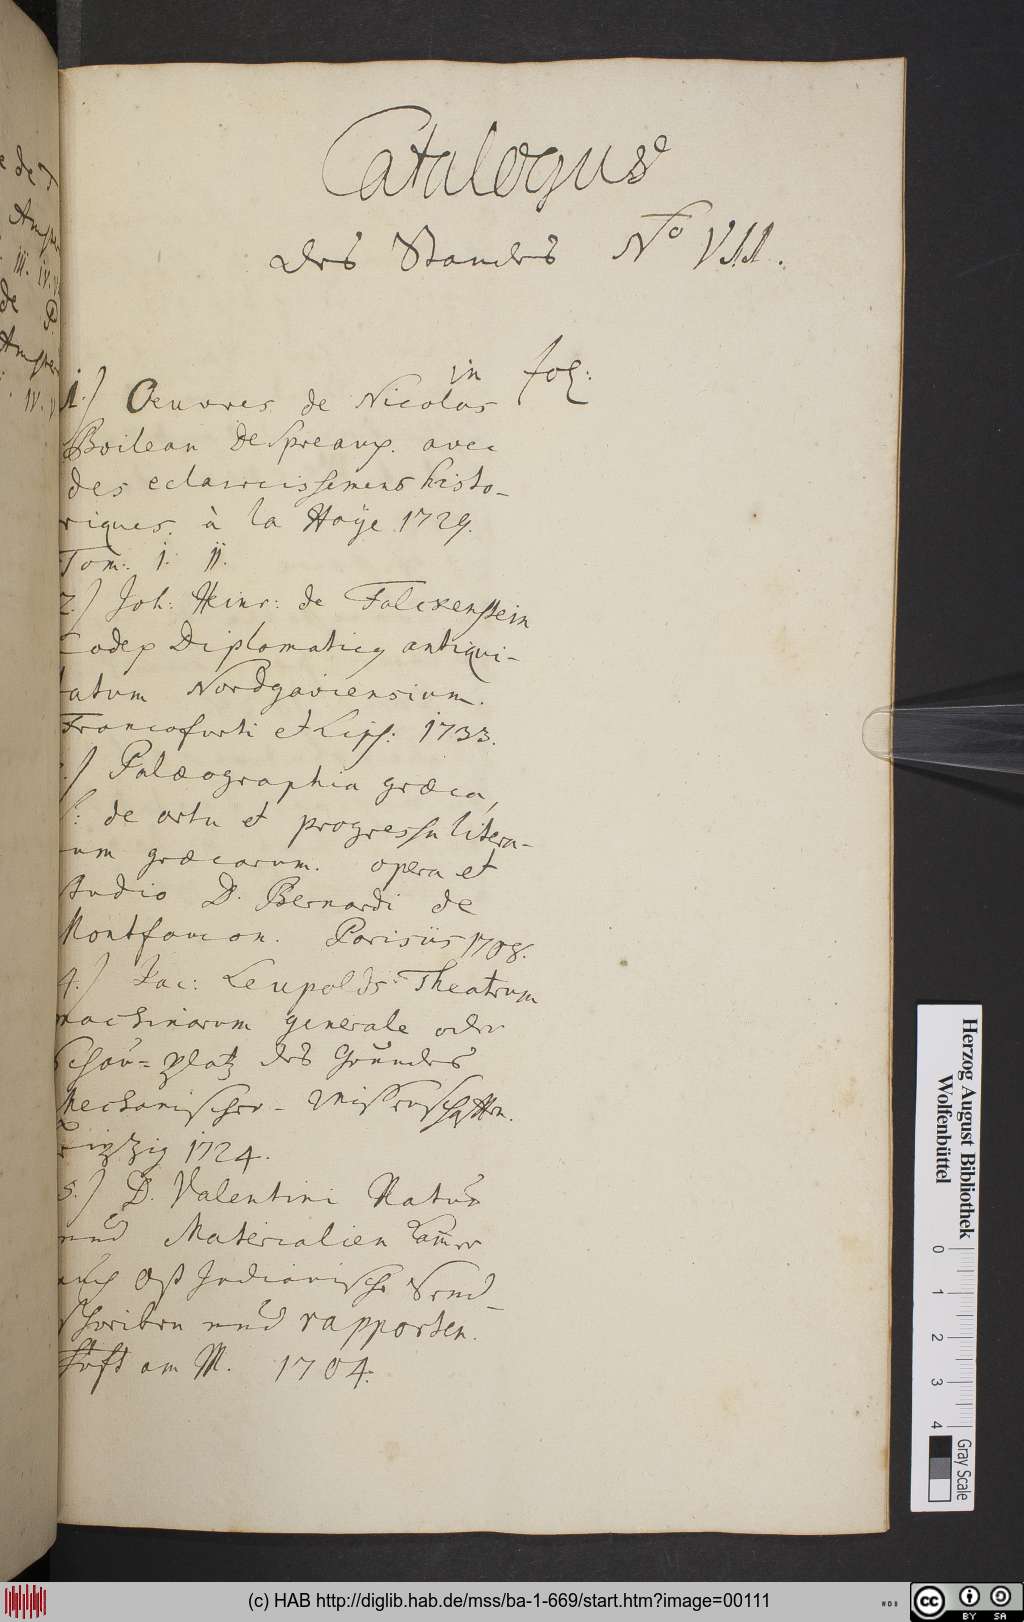 Catalogus
des Standes No VIII.
in fol:
1.) Oeuvres de Nicolas
Boilean Despreaux. avec
des eclaircissemens histo-
riques. à la Haÿe 1729.
Tom: I. II.
2.) Joh: Heinr: de Falckenstein
Codex Diplomaticq antiqui-
tatum Nordgaviensium.
Francofurti et Lips: 1733.
.) Palæographia græca,
s: de ortu et progressu litera-
um græcarum. opera et
studio D. Bernardi de
Montfaucon. Parisiis 1708.
4.) Jac: Leupolds Theatrum
machinarum generale oder
Schau-platz des Grundes
Mechanischer-Wissenschafften.
Leipzig 1724.
5.) D. Valentini Natur
und Materialien Cammer
auch Ost Indianische Send-
schreiben und rapporten.
am M. 1704.
e de T
Amst
III. IV. V
de P.
Amster
IV. V
Herzog August Bibliothek
Wolfenbüttel
0 1 2 3 4
Gray Scale
(c) HAB http://diglib.hab.de/mss/ba-1-669/start.htm?image=00111
WDB
cc BY SA